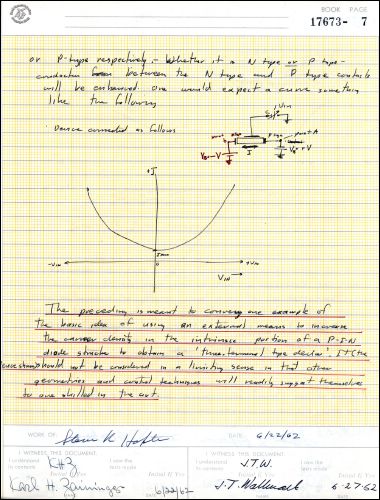 BOOK PAGE
17673- 7
or P-type respectively :- Whether it is N type or P type -
conduction between the N type and P type contacts
will be enhanced one would expect a curve something
like the following
Device connected as follows
Vin
point A
I
+I
-Vin
0
+Vin
Vin →
The preceding is meant to convey one example of
the basic idea of using an external means to increase
the carrier density in the intrinsic portion of a P-I-N
diode structure to obtain a "three terminal type device". It (the
disclosure) should not be considered in a limiting sense in that other
geometries and control techniques will readily suggest themselves
to one skilled in the art.
WORK OF Steven R. Hofstein DATE 6/22/62
I WITNESS THIS DOCUMENT. I WITNESS THIS DOCUMENT.
I understand its contents KHZ I saw the tests made Initial If Yes I understand its contents J.T.W. I saw the tests made Initial If Yes
Karl H. Zaininger 6/22/62 J.T. Wallmark 6-27-62
NAME DATE NAME DATE